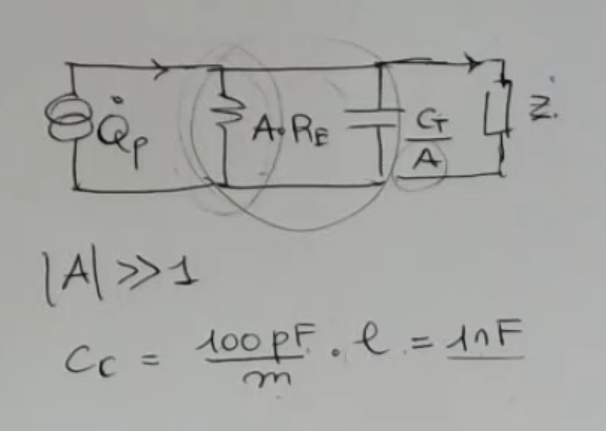 Q̇p A·RE CT/A Z
|A| >> 1
Cc = 100 pF/m · l = 1nF